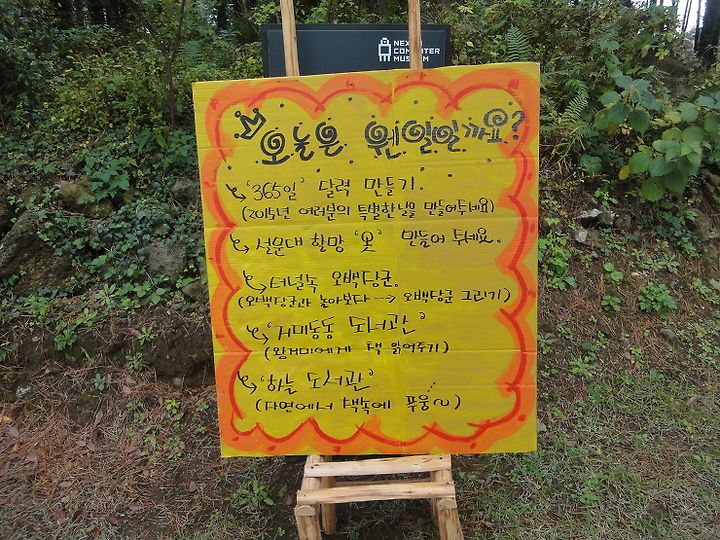 NEXON
COMPUTER
MUSEUM
오늘은 웬일일까요?
'365일' 달력 만들기.
(2015년 여러분의 특별한 날을 만들어 두세요)
설문대 할망 '옷' 만들어 두세요.
터널속 오백당군.
(오백당군과 놀아보다 ---> 오백당군 그리기)
'거미동동 도서관'
(왕거미에게 책 읽어주기)
'하늘 도서관'
(자연에서 책속에 푸웅~)